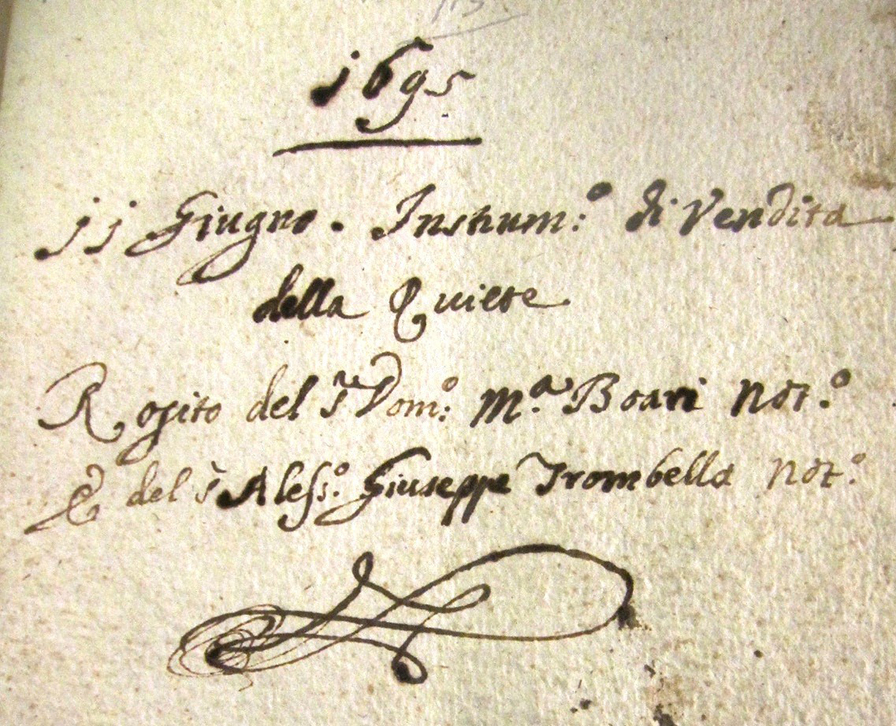 1695
11 Giugno. Instrum:º di Vendita
della Quiete
Rogito del Sr Dom:º Mª Boari Not:º
& del S Aless:º Giuseppe Trombella Not:º